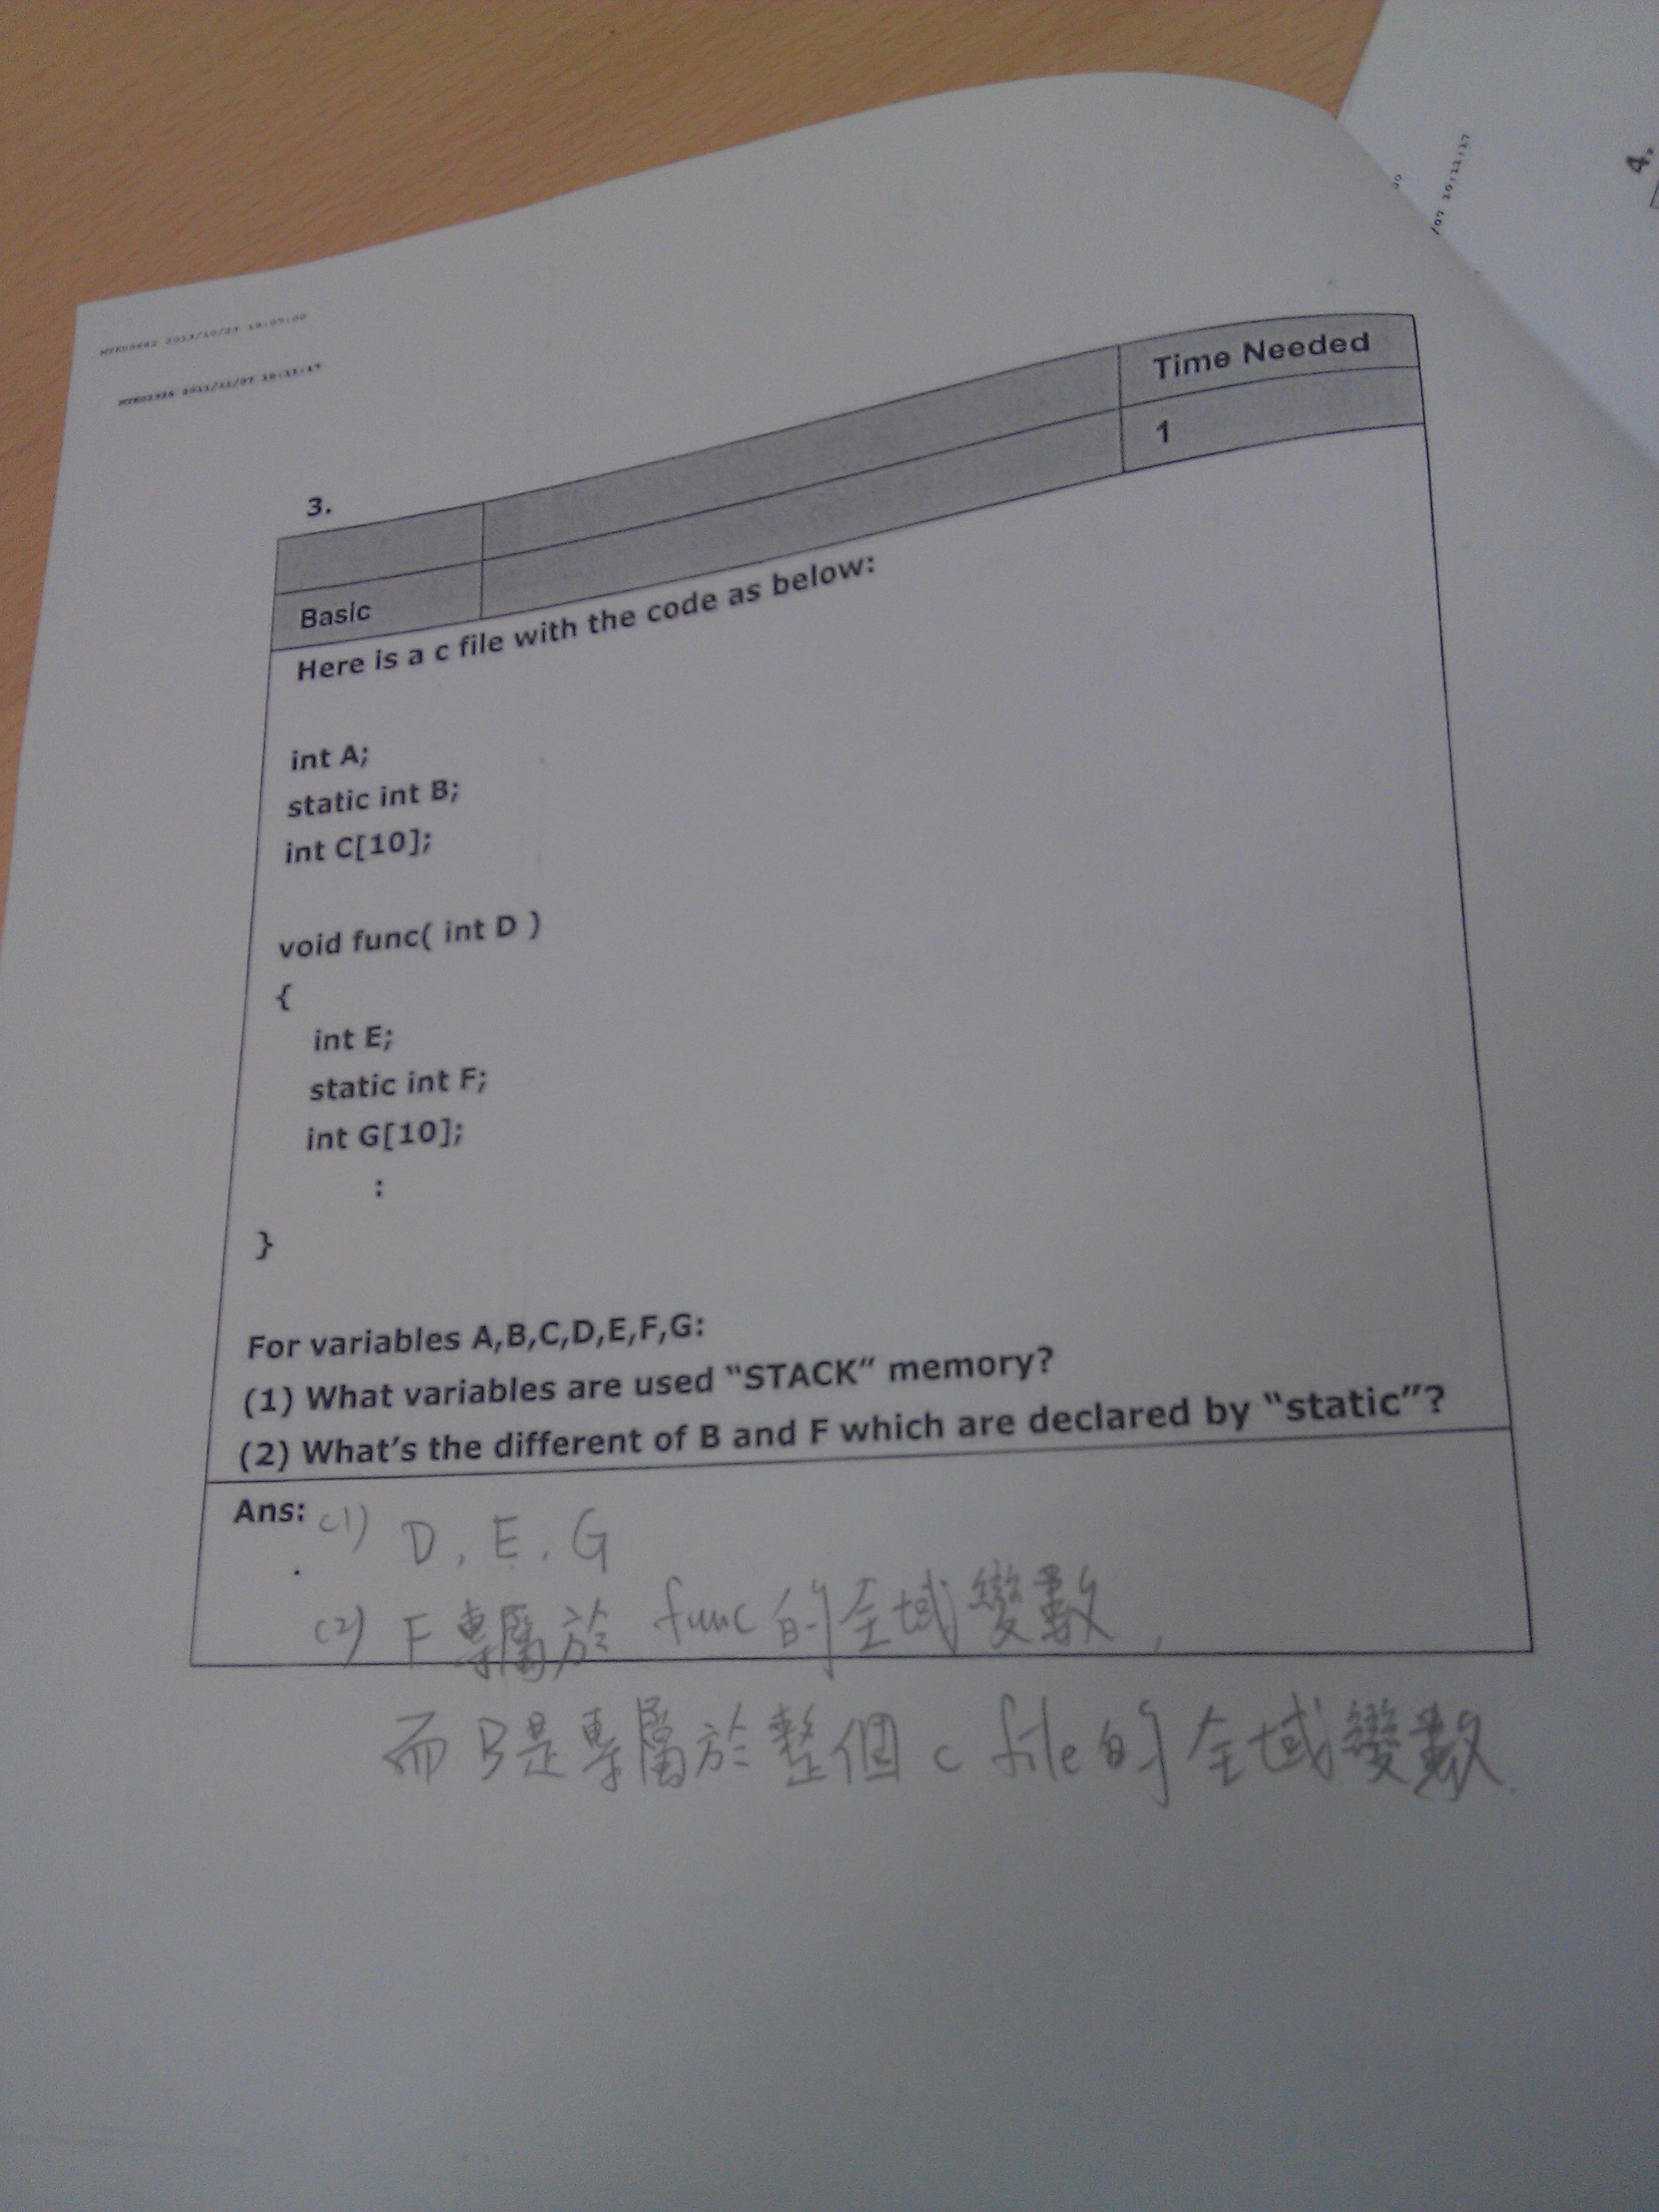 2011/11/07 10:11:17
/07 10:11:17
4.
3.
Time Needed
Basic
1
Here is a c file with the code as below:
int A;
static int B;
int C[10];
void func( int D )
{
int E;
static int F;
int G[10];
:
}
For variables A,B,C,D,E,F,G:
(1) What variables are used “STACK” memory?
(2) What’s the different of B and F which are declared by “static”?
Ans: (1) D, E, G
(2) F專屬於 func的全域變數,
而B是專屬於整個 c file的全域變數.